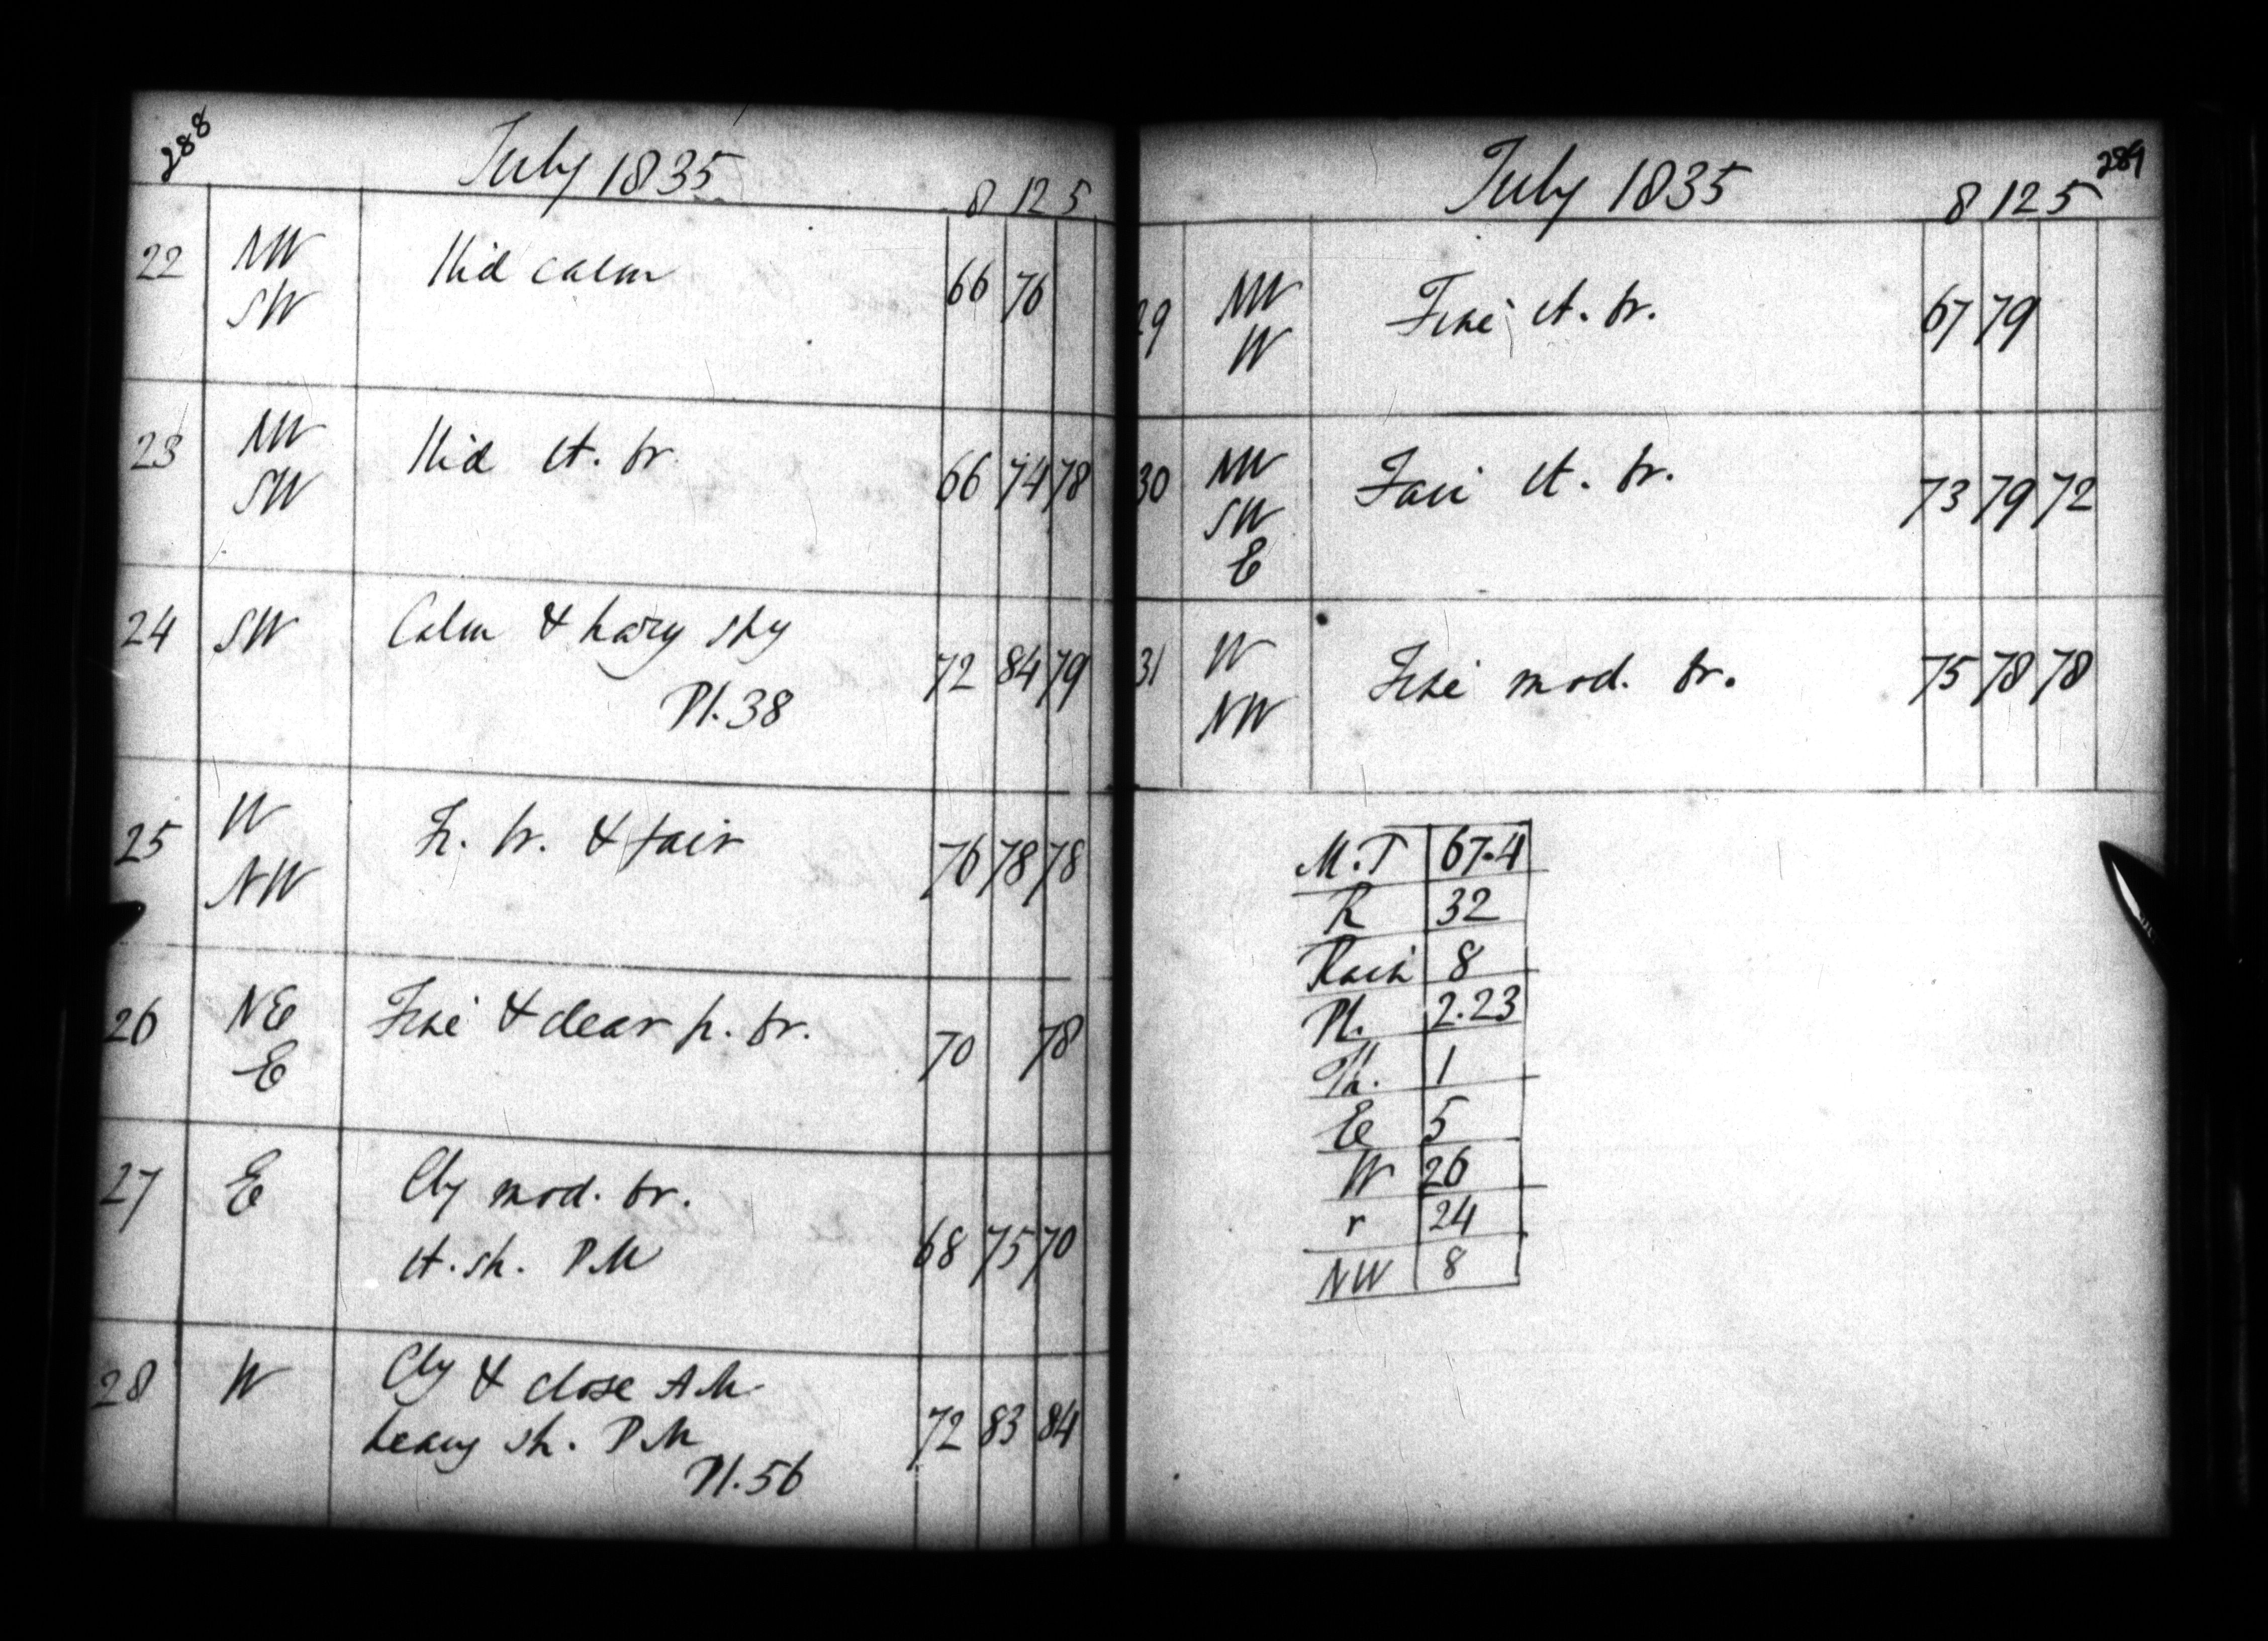 288
July 1835
8 12 5
22 NW SW Hid calm 66 76
23 NW SW Hid lt. br. 66 74 78
24 SW Calm & hazy sky 72 84 79
Pl. 38
25 W NW Fr. br. & fair 76 78 78
26 NE E Fine & clear fr. br. 70 78
27 E Cly mod. br. 68 75 70
lt. sh. P.M
28 W Cly & close A.M 72 83 84
heavy sh. P.M
Pl. 56
289
July 1835
8 12 5
29 NW W Fine lt. br. 67 79
30 NW SW E Fair lt. br. 73 79 72
31 W NW Fine mod. br. 75 78 78
M.T 67.4
R 32
Rain 8
Pl. 2.23
Th. 1
E 5
W 26
r 24
NW 8